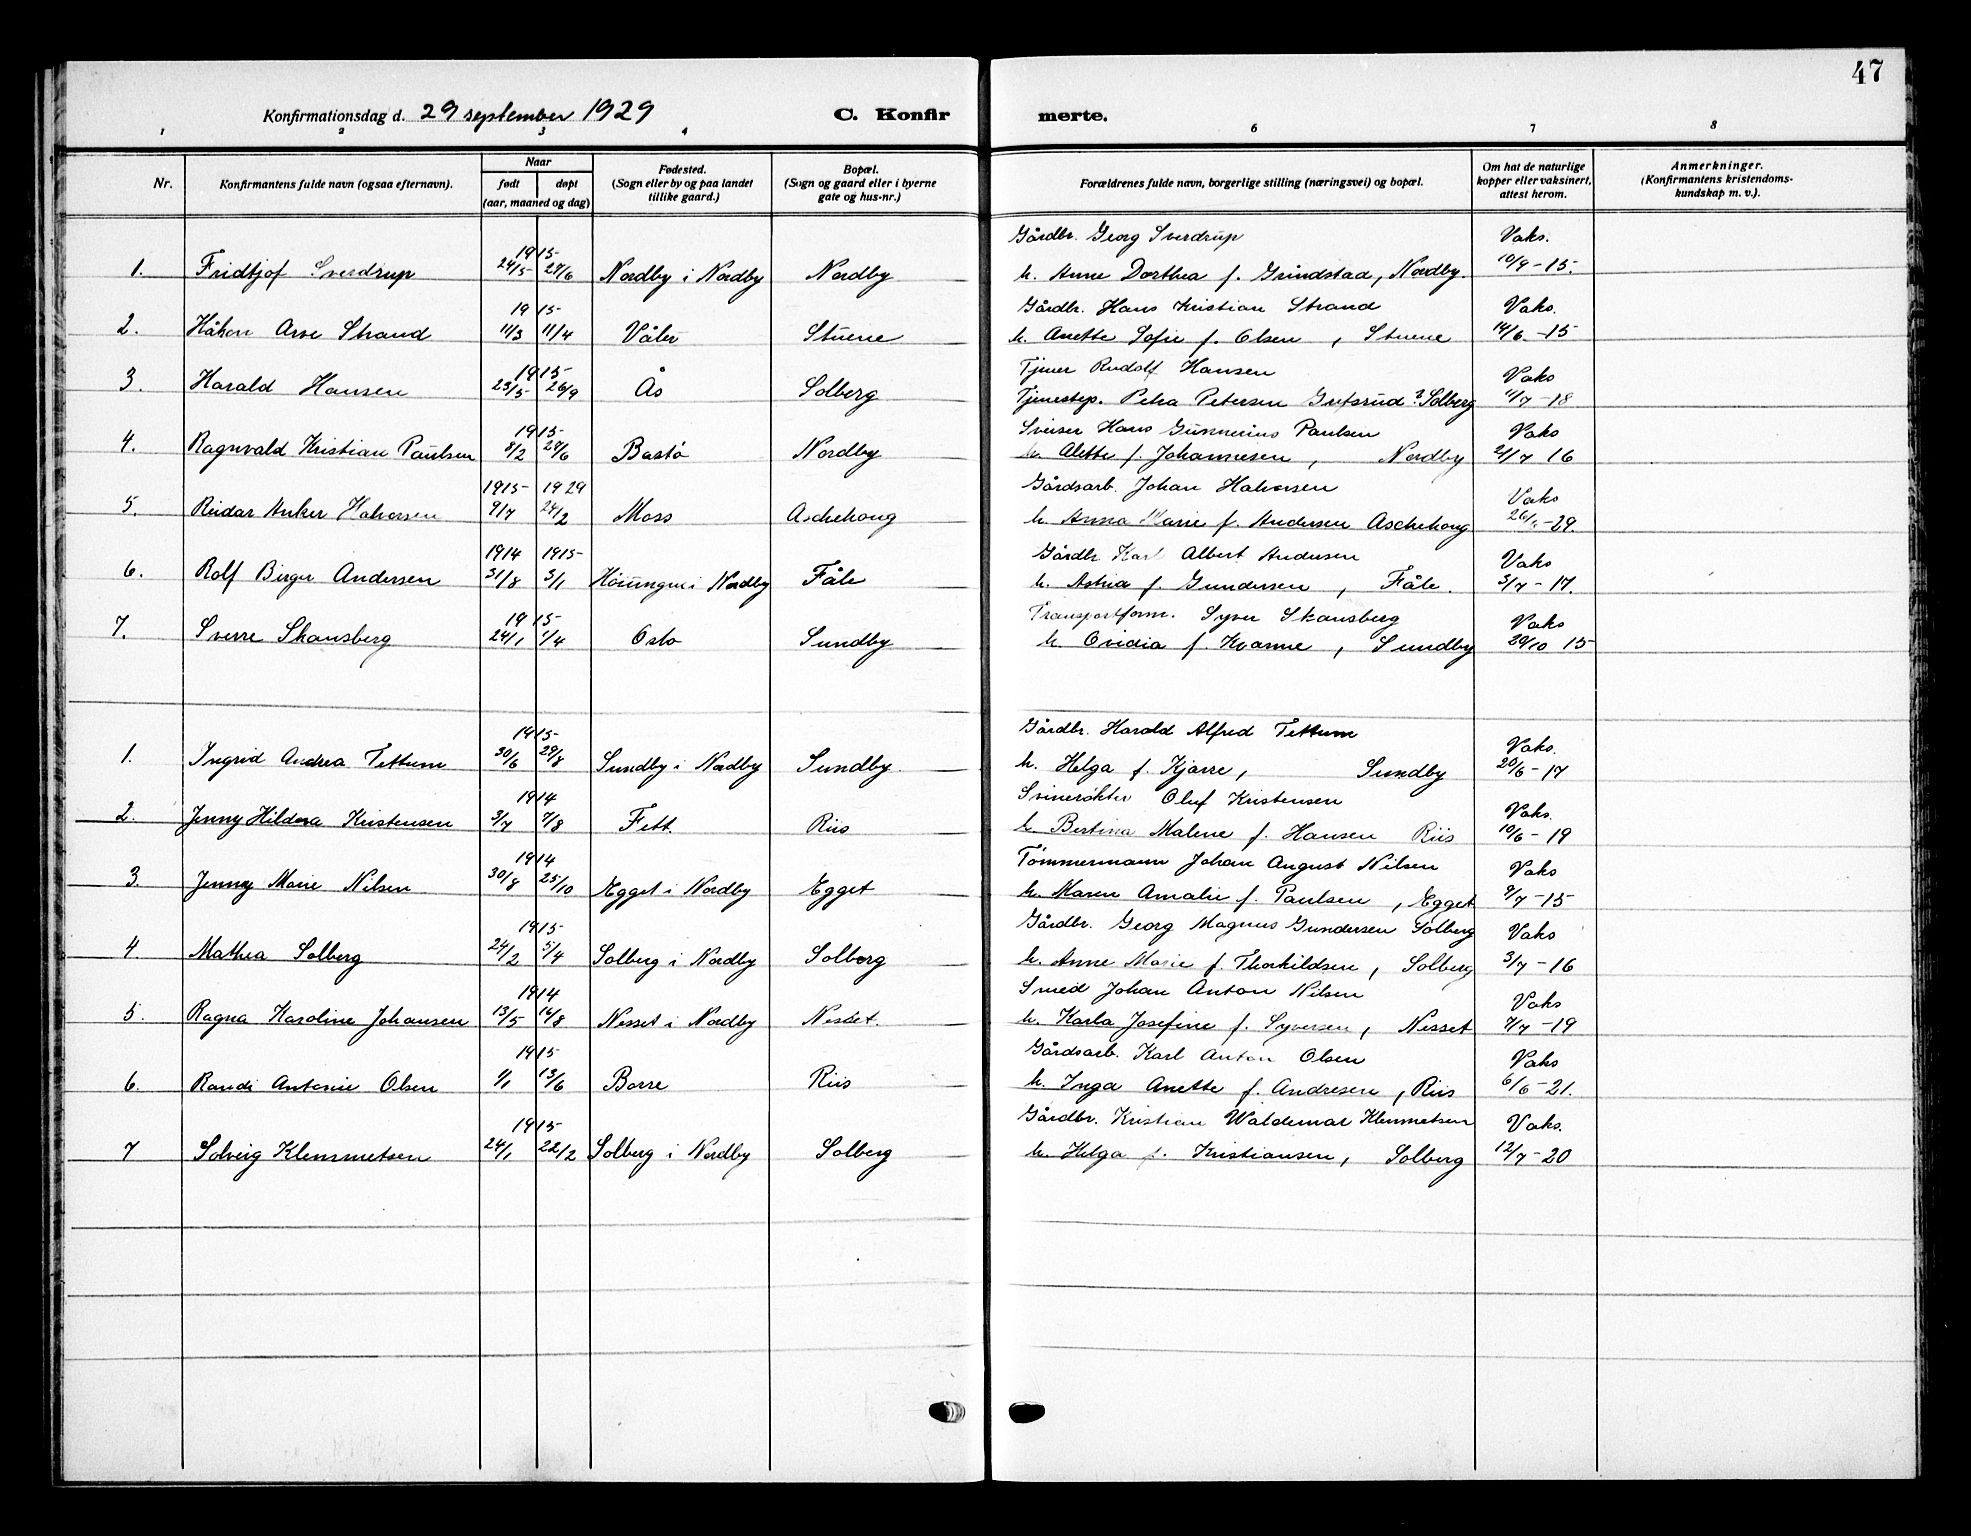 47
Konfirmationsdag d. 29 september 1929 C. Konfir merte.
1 2 3 4 6 7 8
Nr. Konfirmantens fulde navn (ogsaa efternavn). Naar født døpt (aar, maaned og dag) Fødested. (Sogn eller by og paa landet tillike gaard.) Bopæl. (Sogn og gaard eller i byerne gate og hus-nr.) Forældrenes fulde navn, borgerlige stilling (næringsvei) og bopæl. Om hat de naturlige kopper eller vaksinert, attest herom. Anmerkninger. (Konfirmantens kristendoms- kundskap m. v.).
1915 Gårdbr. Georg Sverdrup Vaks.
1. Fridtjof Sverdrup 24/5 27/6 Nordby i Nordby Nordby h. Anne Dorthea f. Grindstad, Nordby. 10/9-15.
1915 Gårdbr. Hans Kristian Strand Vaks.
2. Håkon Arve Strand 11/3 11/4 Våler Stuene h. Anette Sofie f. Olsen, Stuene 14/6-15
1915 Tjener Rudolf Hansen Vaks
3. Harald Hansen 23/5 26/9 Ås Solberg Tjenestep. Petra Petersen Grefsrud? Solberg 11/7-18
1915 Sveiser Hans Gunnerius Paulsen Vaks
4. Ragnvald Kristian Paulsen 8/2 27/6 Bastø Nordby h. Alette f. Johannesen, Nordby 2/7 16
1915 1929 Gårdsarb. Johan Halvorsen Vaks
5. Reidar Anker Halvorsen 9/7 24/2 Moss Aschehoug h. Anna Marie f. Andersen Aschehoug -29.
1914 1915 Gårdbr. Karl Albert Andersen Vaks
6. Rolf Birger Andersen 31/8 3/1 i Nordby Fåle h. Astrid f. Gundersen, Fåle. 3/7-17.
1915 Transportform. Syver Skansberg Vaks
7. Sverre Skansberg 24/1 1/4 Oslo Sundby h. Ovidia f. Kvarme, Sundby 20/10 15
1915 Gårdbr. Harald Alfred Tettum Vaks.
1. Ingrid Andrea Tettum 30/6 29/8 Sundby i Nordby Sundby. h. Helga f. Kjærre, Sundby 20/6-17
1914 Svinerøkter Oluf Kristensen Vaks.
2. Jenny Hildora Kristensen 3/7 9/8 Fett Riis h. Bertina Malene f. Hansen Riis 10/6-19
1914 Tømmermann Johan August Nilsen Vaks
3. Jenny Marie Nilsen 30/8 25/10 Egget i Nordby Egget h. Maren Amalie f. Paulsen, Egget 9/7-15
1915 Gårdbr. Georg Magnus Gundersen Solberg Vaks
4 Mathea Solberg 24/2 5/4 Solberg i Nordby Solberg h. Anne Marie f. Thorkildsen, Solberg 3/7-16
1914 Smed Johan Anton Nilsen Vaks
5. Ragna Karoline Johansen 13/5 16/8 Nesset i Nordby Nesset. h. Karla Josefine f. Syversen, Nesset 7/7-19
1915 Gårdsarb. Karl Anton Olsen Vaks
6. Randi Antonie Olsen 1/1 13/6 Borre Riis h. Inga Anette f. Andresen, Riis 6/6-21.
1915 Gårdbr. Kristian Waldemar Klemmetsen Vaks.
7 Solveig Klemmetsen 24/1 22/2 Solberg i Nordby Solberg h. Helga f. Kristiansen, Solberg 12/7-20